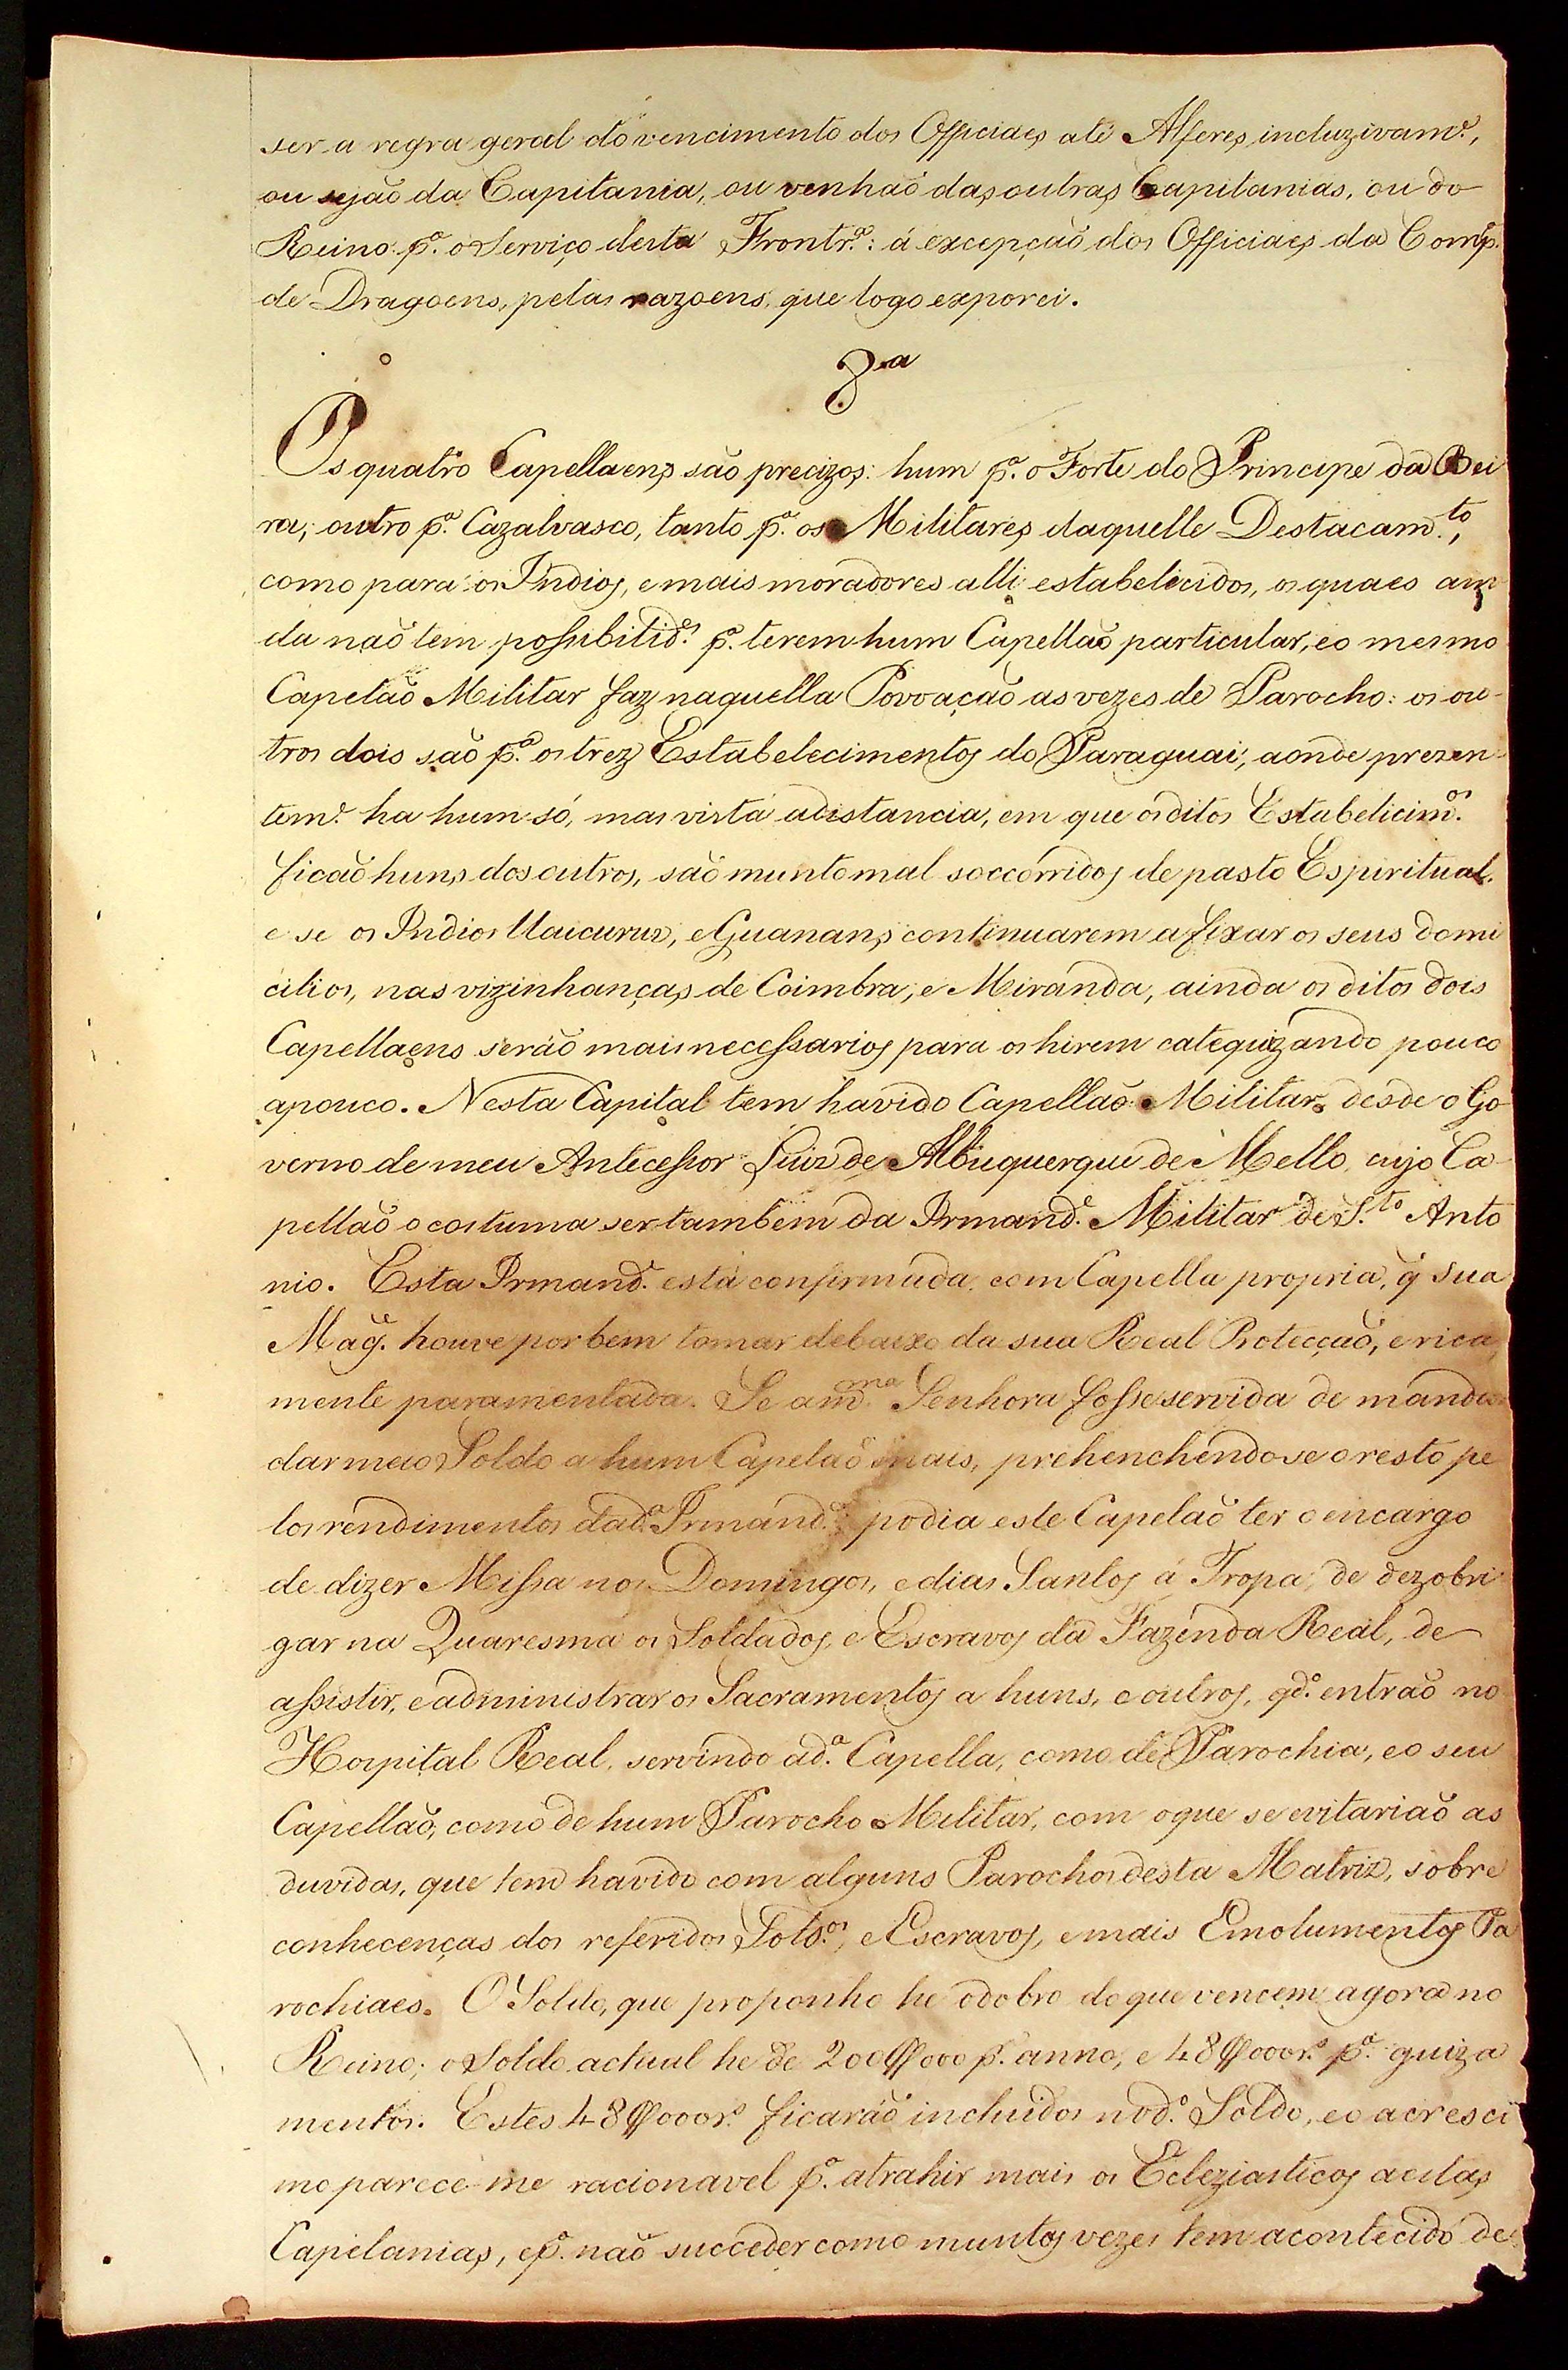 ser a regra geral do vencimento dos Officiaes até Alferes incluzivam.e,
ou sejão da Capitania, ou venhão das outras Capitanias, ou do
Reino p.a o Serviço desta Frontr.a: á excepção dos Officiaes da Comp.a
de Dragoens, pelas razoens, que logo exporei.
8.a
Os quatro Capellaens são precizos: hum p.a o Forte do Principe da Bei
ra; outro p.a Cazalvasco, tanto p.a os Militares daquelle Destacam.to,
como para os Indios, e mais moradores alli estabelicidos, os quaes ain
da não tem possibilid.e p.a terem hum Capellão particular, e o mesmo
Capelão Militar faz naquella Povoação as vezes de Parocho: os ou-
tros dois são p.a os trez Estabelecimentos do Paraguai, aonde prezen-
tem.e ha hum só, mas vista a distancia, em que os ditos Estabelicim.os
ficão huns dos outros, são munto mal soccorridos de pasto Espiritual.
e se os Indios Uaicurus, e Guanans continuarem a fixar os seus domi
cilios, nas vizinhanças de Coimbra, e Miranda, ainda os ditos dois
Capellaens serão mais necessarios para os hirem catequizando pouco
apouco. Nesta Capital tem havido Capellão Militar desde o Go
verno de meu Antecessor Luiz de Albuquerque de Mello, cujo Ca-
pellão o costuma ser tambem da Irmand.e Militar de S.to Anto
nio. Esta Irmand.e está confirmada, com Capella propria, q̃ Sua
Mag.e houve por bem tomar debaixo da sua Real Protecção, e rica
mente paramentada. Se a m.ma Senhora fosse servida de mandar
dar meio Soldo a hum Capelão mais, prehenchendo-se o resto pe
los rendimentos da d.a Irmand.e, podia este Capelão ter o encargo
de dizer Missa nos Domingos, e dias Santos á Tropa, de dezobri
gar na Quaresma os Soldados, e Escravos da Fazenda Real, de
assistir, e administrar os Sacramentos a huns, e outros, qd.o entrão no
Hospital Real, servindo a d.a Capella, como de Parochia, e o seu
Capellão, como de hum Parocho Militar, com o que se evitarião as
duvidas, que tem havido com alguns Parochos desta Matriz, sobre
conhecenças dos referidos Sold.os, e Escravos, e mais Emolumentos Pa
rochiaes. O Soldo, que proponho he o dobro do que vencem agora no
Reino; o Soldo actual he de 200$000 p.r anno, e 48$000 r.s p.a guiza
mentos. Estes 48$000 r.s ficarão incluidos no d.o Soldo, e o acresci
mo parece-me racionavel p.a atrahir mais os Ecleziasticos a estas
Capelanias, e p.a não succeder como muntas vezes tem acontecido de